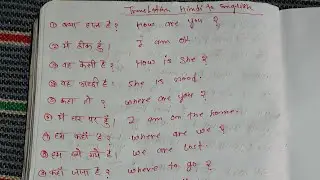 Translation Hindi to English
① क्या हाल है? How are you?
② मैं ठीक हूँ। I am ok.
③ वह कैसी है? How is she?
④ वह अच्छी है। She is good.
⑤ कहाँ हो? where are you?
⑥ मैं घर पर हूँ। I am on the home.
⑦ हम कहाँ हैं? where are we?
⑧ हम खो गये हैं। we are lost.
⑨ कहाँ जाना है? where to go?